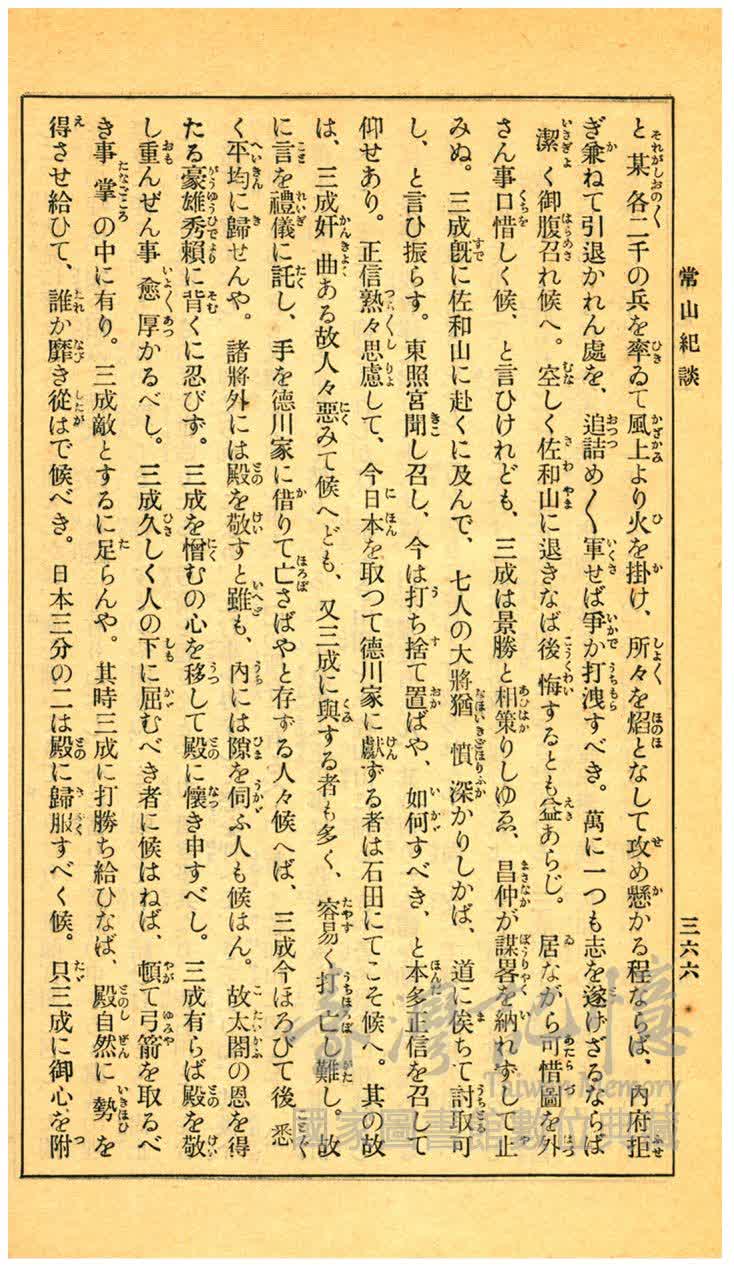 常山紀談
三六六
と某各二千の兵を率ゐて風上より火を掛け、所々を焰となして攻め懸かる程ならば、內府拒
ぎ兼ねて引退かれん處を、追詰め〱軍せば爭か打洩すべき。萬に一つも志を遂げざるならば
潔く御腹召れ候へ。空しく佐和山に退きなば後悔するとも益あらじ。居ながら可惜圖を外
さん事口惜しく候、と言ひけれども、三成は景勝と相策りしゆゑ、昌仲が謀畧を納れずして止
みぬ。三成旣に佐和山に赴くに及んで、七人の大將猶憤深かりしかば、道に俟ちて討取可
し、と言ひ振らす。東照宮聞し召し、今は打ち捨て置ばや、如何すべき、と本多正信を召して
仰せあり。正信熟々思慮して、今日本を取つて德川家に獻ずる者は石田にてこそ候へ。其の故
は、三成奸曲ある故人々惡みて候へども、又三成に與する者も多く、容易く打亡し難し。故
に言を禮儀に託し、手を德川家に借りて亡さばやと存ずる人々候へば、三成今ほろびて後悉
く平均に歸せんや。諸將外には殿を敬すと雖も、內には隙を伺ふ人も候はん。故太閤の恩を得
たる豪雄秀賴に背くに忍びず。三成を憎むの心を移して殿に懷き申すべし。三成有らば殿を敬
し重んぜん事愈厚かるべし。三成久しく人の下に屈むべき者に候はねば、頓て弓箭を取るべ
き事掌の中に有り。三成敵とするに足らんや。其時三成に打勝ち給ひなば、殿自然に勢を
得させ給ひて、誰か靡き從はで候べき。日本三分の二は殿に歸服すべく候。只三成に御心を附
臺灣記憶
Taiwan Memory
國家圖書館數位典藏